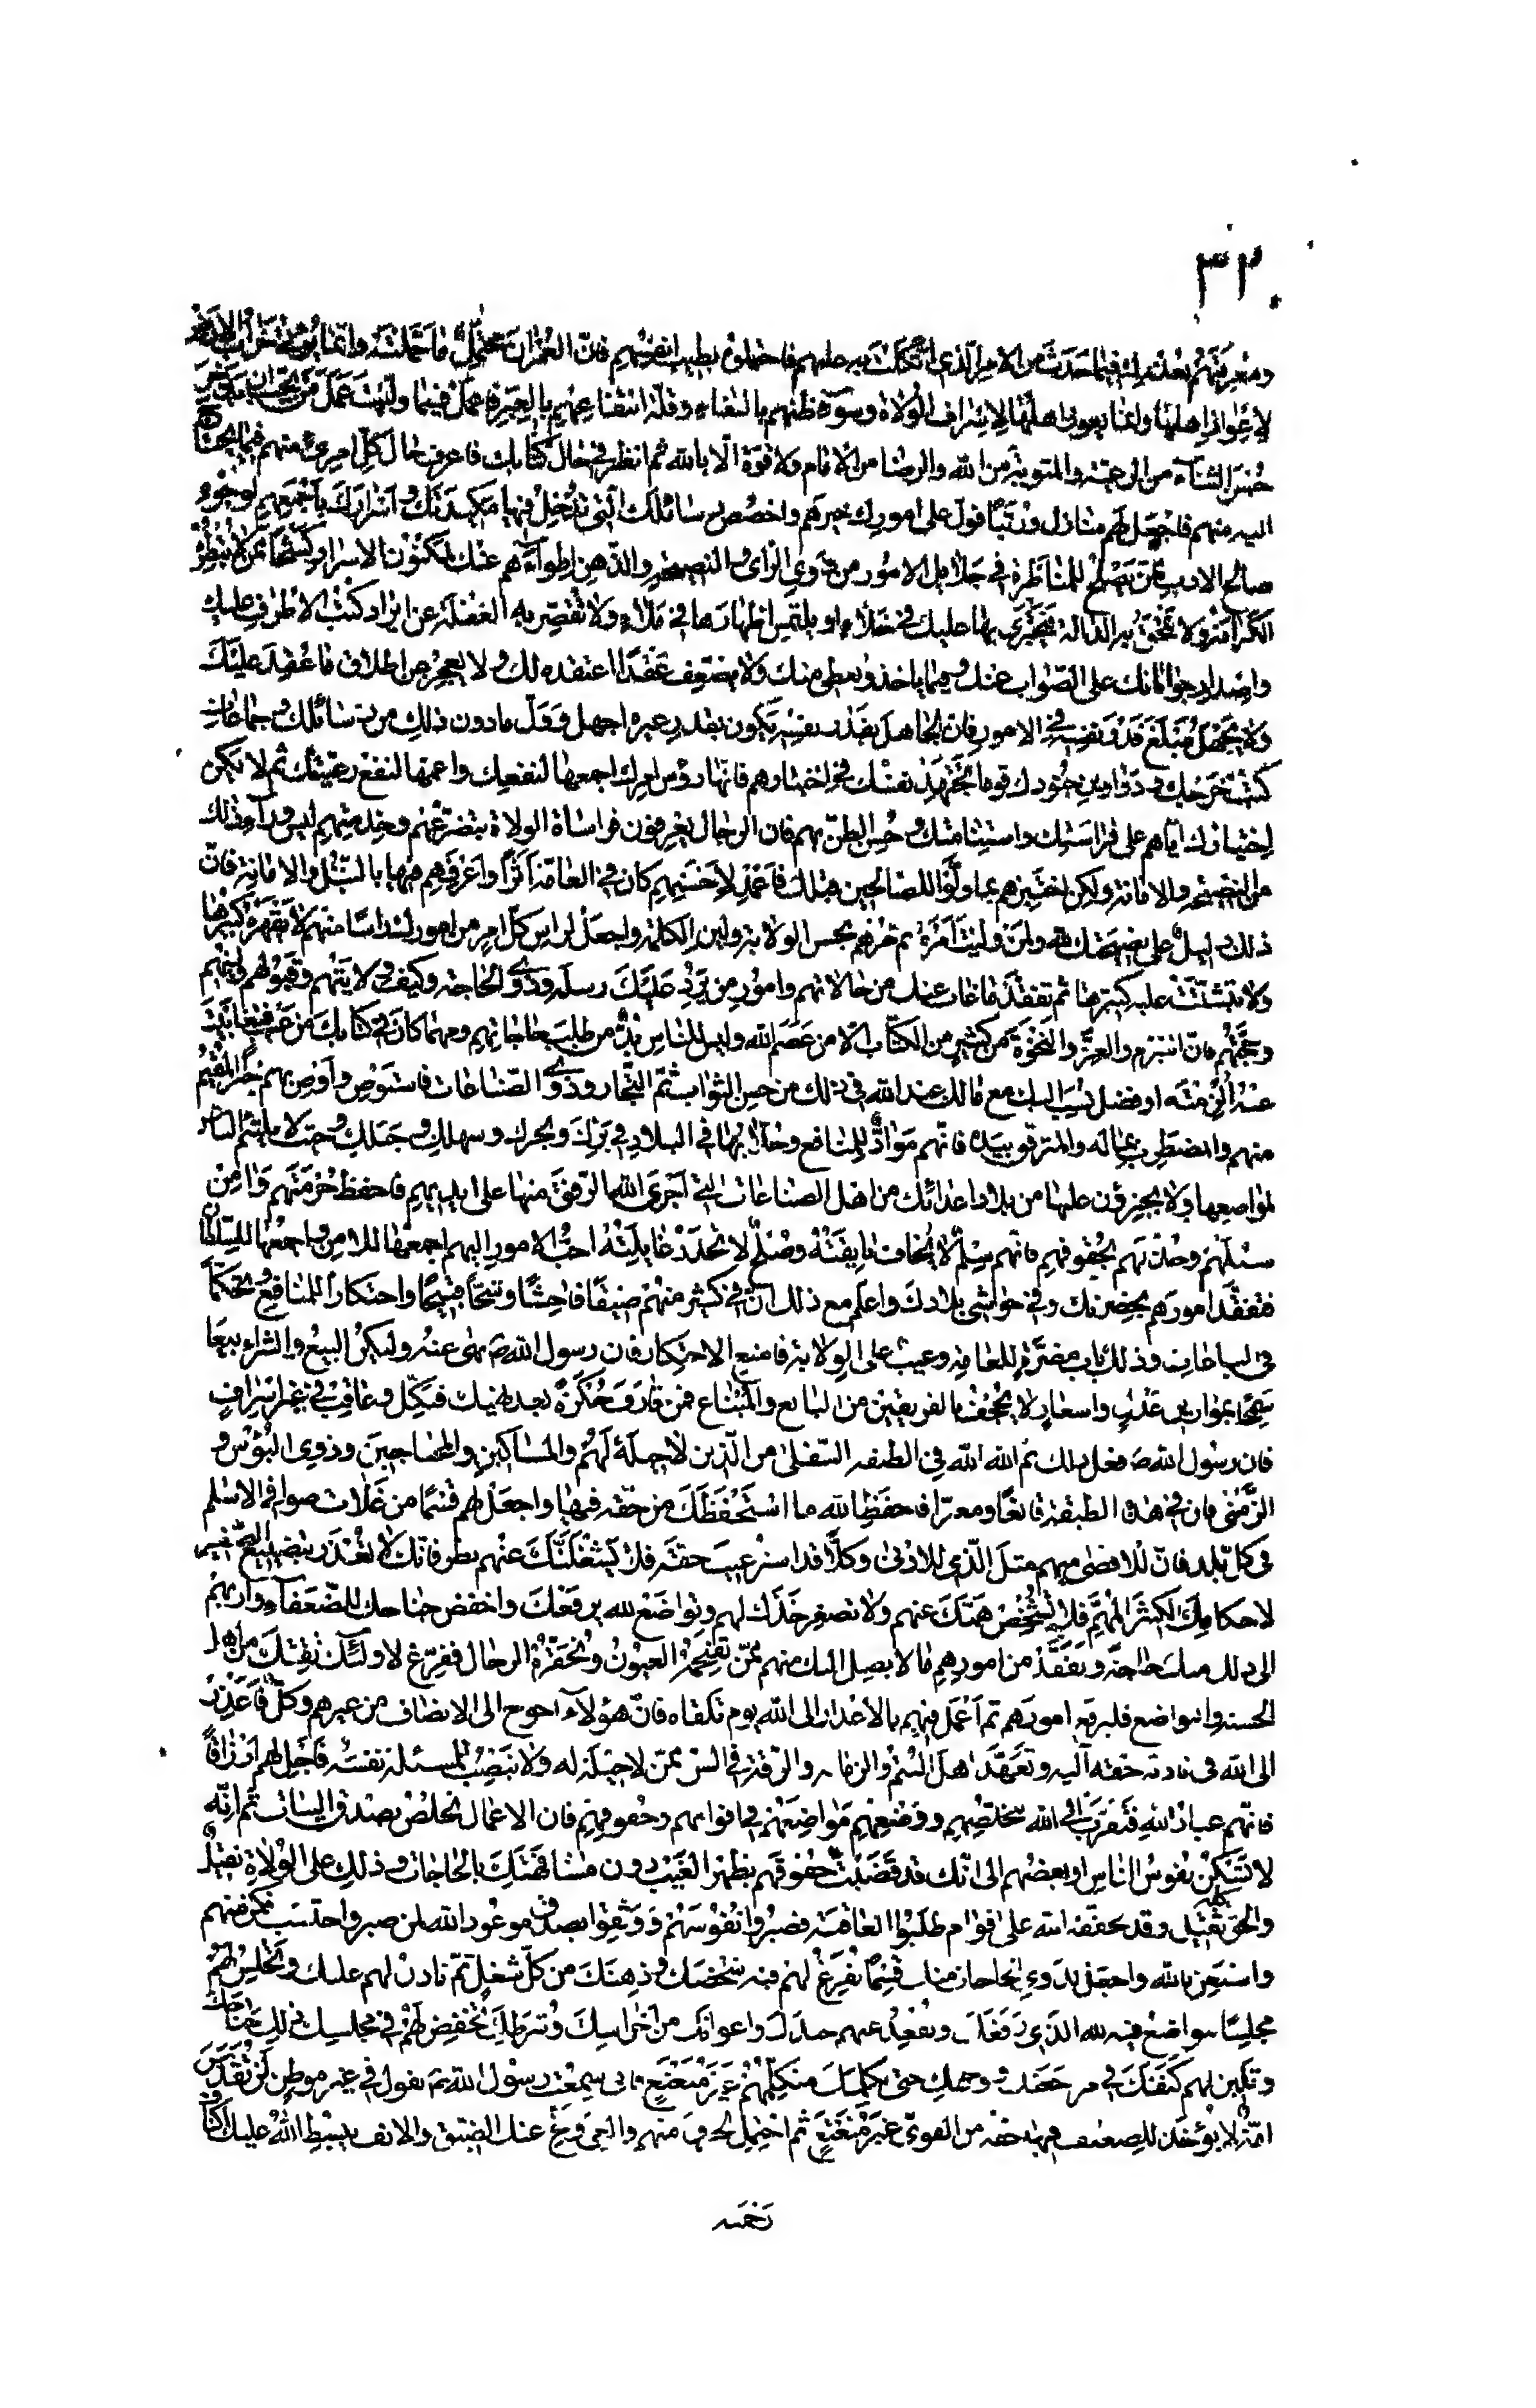 ٣٢٠
ومعرفتهم بعذرك فيما حدث من الامر الذي اتكلت به عليهم فاحتملوه بطيب انفسهم فان العمران محتمل ما حملته وانما يؤتى خراب الارض
لاعواز اهلها وانما يعوز اهلها لاسراف الولاة وسوء ظنهم بالبقاء وقلة انتفاعهم بالعبر فاعمل فيما وليت عمل من يحب ان يدخر
حسن الثناء من الرعية والمثوبة من الله والرضا من الامام ولا قوة الا بالله ثم انظر في حال كتابك فاعرف حال كل امرئ منهم فيما يحتاج
اليه منهم فاجعل لهم منازل ورتبا فول على امورك خيرهم واخصص رسائلك التي تدخل فيها مكيدتك واسرارك باجمعهم لوجوه
صالح الادب ممن يصلح للمناظرة في جلائل الامور من ذوي الراي والنصيحة والذهن اطواهم عنك لمكنون الاسرار كشحا ممن لا تبطره
الكرامة ولا تمحق به الدالة فيجتري بها عليك في خلاء او يلتمس اظهارها في ملاء ولا تقصر به الغفلة عن ايراد كتب الاطراف عليك
واصدار جواباتك على الصواب عنك وفيما ياخذ ويعطي منك ولا يضعف عقدا اعتقده لك ولا يعجز عن اطلاق ما عقد عليك
ولا يجهل مبلغ قدر نفسه في الامور فان الجاهل بقدر نفسه يكون بقدر غيره اجهل وول ما دون ذلك من رسائلك وجماعات
كتب خرجك ودواوين جنودك قوما تجتهد نفسك في اختيارهم فانها رؤس امرك اجمعها لنفعك واعمها لنفع رعيتك ثم لا يكن
اختيارك اياهم على فراستك واستنامتك وحسن الظن بهم فان الرجال يعرفون فراسات الولاة بتضرعهم وخدمتهم ليس وراء ذلك
من النصيحة والامانة ولكن اختبرهم بما ولوا للصالحين قبلك فاعمد لاحسنهم كان في العامة اثرا واعرفهم فيها بالنبل والامانة فان
ذلك دليل على نصيحتك لله ولمن وليت امره ثم مرهم بحسن الولاية ولين الكلمة واجعل لراس كل امر من امورك راسا منهم لا يقهره كبيرها
ولا يتشتت عليه كثيرها ثم تفقد ما غاب عنك من حالاتهم وامور من يرد عليك رسله وذوي الحاجة وكيف ولايتهم وقبولهم وليهم
وحجتهم فان التبرم والعز والنخوة من كثير من الكتاب الا من عصم الله وليس للناس بد من طلب حاجاتهم ومهما كان في كتابك من عيب فتغابيت
عنه الزمته او فضل نسب اليك مع ما لك عند الله في ذلك من حسن الثواب ثم التجار وذوي الصناعات فاستوص واوص بهم خيرا المقيم
منهم والمضطرب بماله والمترفق بيده فانهم مواد للمنافع وجلابها في البلاد في برك وبحرك وسهلك وجبلك وحيث لا يلتئم الناس
لمواضعها ولا يجترؤن عليها من بلاد اعدائك من اهل الصناعات التي اجرى الله الرفق منها على ايديهم فاحفظ حرمتهم وامن
سبلهم وخذ لهم بحقوقهم فانهم سلم لا تخاف بايقته وصلح لا تحذر غايلته احب الامور اليهم اجمعها للامن واجمعها للسلطان
فتفقد امورهم بحضرتك وفي حواشي بلادك واعلم مع ذلك ان في كثير منهم ضيقا فاحشا وشحا قبيحا واحتكارا للمنافع وتحكما
في البياعات وذلك باب مضرة للعامة وعيب على الولاية فامنع الاحتكار فان رسول الله ص نهى عنه وليكن البيع والشراء بيعا
سمحا بموازين عدل واسعار لا تجحف بالفريقين من البايع والمبتاع فمن قارف حكرة بعد نهيك فنكل وعاقب في غير اسراف
فان رسول الله ص فعل ذلك ثم الله الله في الطبقة السفلى من الذين لا حيلة لهم والمساكين والمحتاجين وذوي البؤس و
الزمنى فان في هذه الطبقة قانعا ومعترا فاحفظ لله ما استحفظك من حقه فيها واجعل لهم قسما من غلات صوافي الاسلام
في كل بلد فان للاقصى منهم مثل الذي للادنى وكلا قد استرعيت حقه فلا يشغلنك عنهم بطر فانك لا تعذر بتضييع الصغير
لاحكامك الكثير المهم فلا تشخص همك عنهم ولا تصعر خدك لهم وتواضع لله يرفعك واخفض جناحك للضعفاء واربهم
الى ذلك منك حاجة وتفقد من امورهم ما لا يصل اليك منهم ممن تقتحمه العيون وتحقره الرجال ففرغ لاولئك ثقتك من اهل
الخشية والتواضع فليرفع امورهم ثم اعمل فيهم بالاعذار الى الله يوم تلقاه فان هؤلاء احوج الى الانصاف من غيرهم وكل فاعذر
الى الله في تادية حقه اليه وتعهد اهل اليتم والزمانة والرقة في السن ممن لا حيلة له ولا ينصب للمسئلة نفسه فاجر لهم ارزاقا
فانهم عباد الله فتقرب الى الله بتخلصهم ووضعهم مواضعهم في اقواتهم وحقوقهم فان الاعمال تخلص بصدق النيات ثم انه
لا تسكن نفوس الناس او بعضهم الى انك قد قضيت حقوقهم بظهر الغيب دون مشافهتك بالحاجات وذلك على الولاة ثقيل
والحق كله ثقيل وقد يخففه الله على اقوام طلبوا العاقبة فصبروا نفوسهم ووثقوا بصدق موعود الله لمن صبر واحتسب فكن منهم
واستعن بالله واجعل لذوي الحاجات منك قسما تفرغ لهم فيه شخصك وذهنك من كل شغل ثم تاذن لهم عليك وتجلس لهم
مجلسا تتواضع فيه لله الذي رفعك وتقعد عنهم جندك واعوانك من احراسك وشرطك تخفض لهم في مجلسك ذلك جناحك
وتلين لهم كنفك في مراجعتك ووجهك حتى يكلمك متكلمهم غير متعتع فاني سمعت رسول الله ص يقول في غير موطن لن تقدس
امة لا يؤخذ للضعيف فيها حقه من القوي غير متعتع ثم احتمل الخرق منهم والعي ونح عنك الضيق والانف يبسط الله عليك اكناف
رحمته